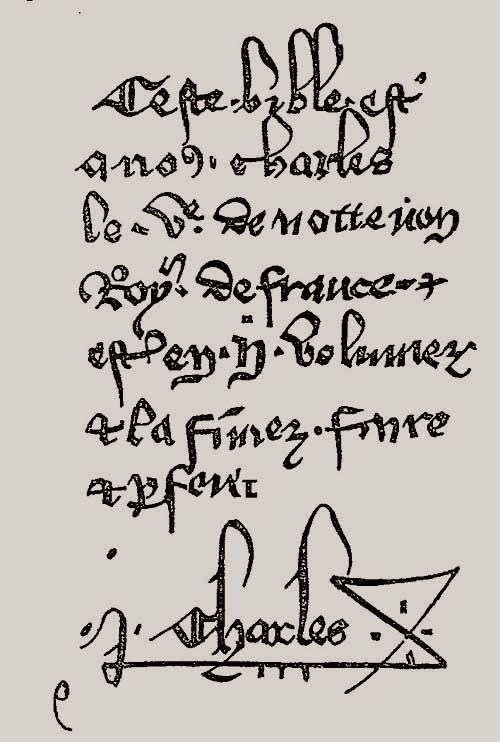 Ceste bible est
a noꝯ · charles
le · Vᵉ · de notte non
Roy · de france · ⁊
est en · ij · volumez
⁊ la fimez · fayre
⁊ ꝑfere
· J · Charles